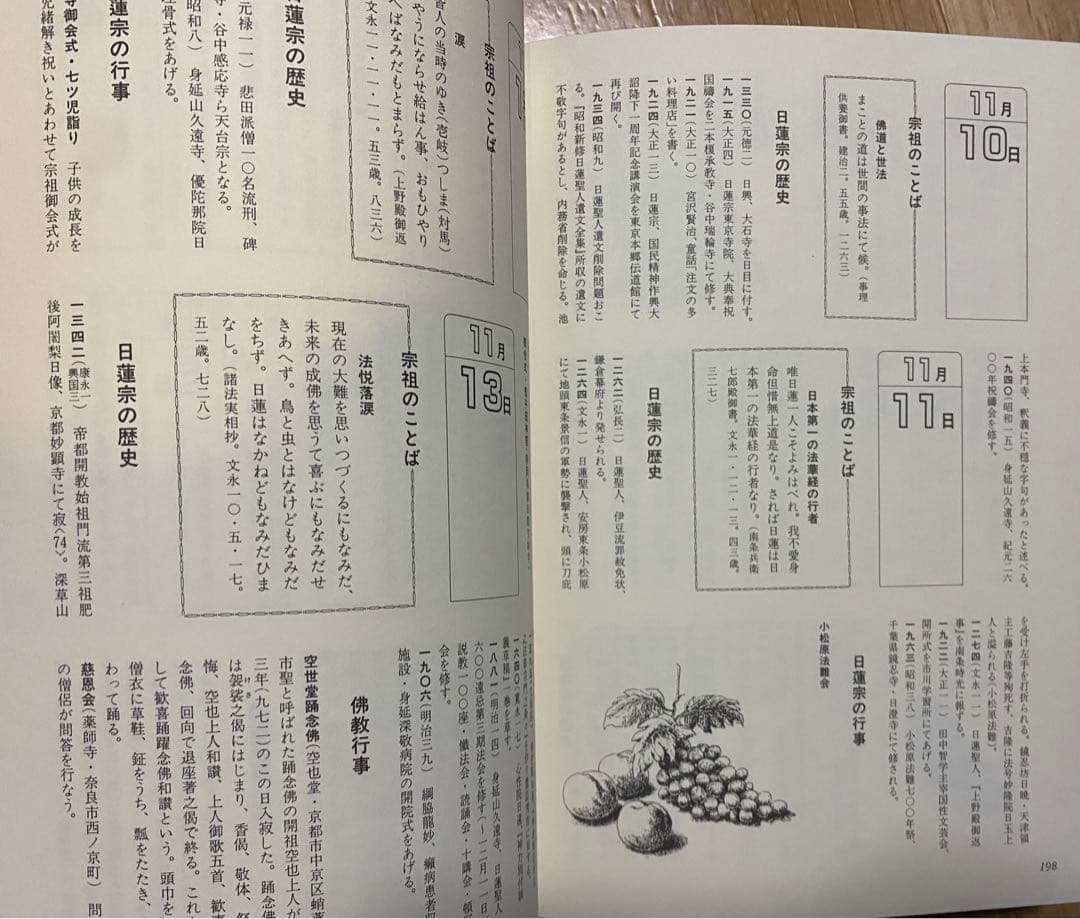 11月
10日
宗祖のことば
佛道と世法
まことの道は世間の事法にて候。(事理
供養御書。建治二。五五歳。一二六三)
日蓮宗の歴史
一三三〇(元徳二) 日興、大石寺を日目に付す。
一九一五(大正四) 日蓮宗東京寺院、大典奉祝
国禱会を二本榎承教寺・谷中瑞輪寺にて修す。
一九二一(大正一〇) 宮沢賢治、童話『注文の多
い料理店』を書く。
一九二四(大正一三) 日蓮宗、国民精神作興大
詔降下一周年記念講演会を東京本郷伝道館にて
再び開く。
一九三四(昭和九) 日蓮聖人遺文削除問題おこ
る。『昭和新修日蓮聖人遺文全集』所収の遺文に
不敬字句があるとし、内務省削除を命じる。池
上本門寺、釈義に不穏な字句があったと述べる。
一九四〇(昭和一五) 身延山久遠寺、紀元二六
〇〇年祝禱会を修す。
11月
11日
宗祖のことば
日本第一の法華経の行者
唯日蓮一人こそよみはべれ。我不愛身
命但惜無上道是なり。されば日蓮は日
本第一の法華経の行者なり。(南条兵衛
七郎殿御書。文永一・一二・一三。四三歳。
三二七)
日蓮宗の歴史
一二六二(弘長二) 日蓮聖人、伊豆流罪赦免状、
鎌倉幕府より発せられる。
一二六四(文永一) 日蓮聖人、安房東条小松原
にて地頭東条景信の軍勢に襲撃され、頭に刀疵
を受け左手を打折られる。鏡忍坊日暁・天津領
主工藤吉隆等殉死す。吉隆に法号妙隆院日玉上
人と謚られる(小松原法難)。
一二七四(文永一一) 日蓮聖人、『上野殿御返
事』を南条時光に報ずる。
一九二二(大正一一) 田中智学主宰国性文芸会、
開所式を市川学習所にてあげる。
一九六三(昭和三八) 小松原法難七〇〇年祭、
千葉県鏡忍寺・日澄寺にて修される。
日蓮宗の行事
小松原法難会
198
宗祖のことば
涙
当時のゆき(壱岐)つしま(対馬)
やうにならせ給はん事、おもひやり
へばなみだもとまらず。(上野殿御返
文永一一・一一・一一。五三歳。八三六)
日蓮宗の歴史
元禄一一) 悲田派僧一〇名流刑、碑
・谷中感応寺ら天台宗となる。
昭和八) 身延山久遠寺、優陀那院日
骨式をあげる。
宗の行事
御会式・七ツ児詣り 子供の成長を
児緒解き祝いとあわせて宗祖御会式が
11月
13日
宗祖のことば
法悦落涙
現在の大難を思いつづくるにもなみだ、
未来の成佛を思うて喜ぶにもなみだせ
きあへず。鳥と虫とはなけどもなみだ
をちず。日蓮はなかねどもなみだひま
なし。(諸法実相抄。文永一〇・五・一七。
五二歳。七二八)
日蓮宗の歴史
一三四二(康永一 興国三) 帝都開教始祖門流第三祖肥
後阿闍梨日像、京都妙顕寺にて寂〈74〉。深草山
一八八一(明治一四) 身延山久遠寺、日蓮聖人
六〇〇遠忌第三期法会を修す(―一二月一一日
説教一〇〇座・懺法会・読誦会・十講会・頓
会を修す。
一九〇六(明治三九) 綱脇龍妙、癩病患者
施設・身延深敬病院の開院式をあげる。
佛教行事
空世堂踊念佛(空也堂・京都市中京区蛸薬
市聖と呼ばれた踊念佛の開祖空也上人が
三年(九七二)のこの日入寂した。踊念佛
は袈裟之偈にはじまり、香偈、敬体、
悔、空也上人和讃、上人御歌五首、歓喜
念佛、回向で退座著之偈で終る。これ
して歓喜踊躍念佛和讃という。頭巾を
僧衣に草鞋、鉦をうち、瓢をたたき、
わって踊る。
慈恩会(薬師寺・奈良市西ノ京町) 問
の僧侶が問答を行なう。